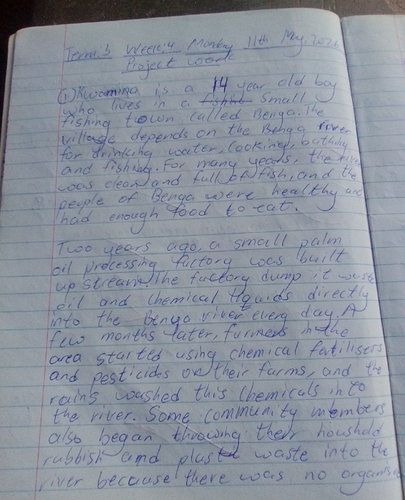 Term:3 Week:4 Monday 11th May, 2026
Project work
(1) Kwamina is a 14 year old boy
who lives in a small
fishing town called Benga. The
village depends on the Benga river
for drinking water, cooking, bathing
and fishing. For many years, the river
was clean and full of fish, and the
people of Benga were healthy and
had enough food to eat.
Two years ago, a small palm
oil processing factory was built
up stream. The factory dump it waste
oil and chemical liquids directly
into the Benga river every day. A
few months later, farmers in the
area started using chemical fatilisers
and pesticides on their farms, and the
rains washed this chemicals into
the river. Some community members
also began throwing their houshold
rubbish and plastic waste into the
river because there was no